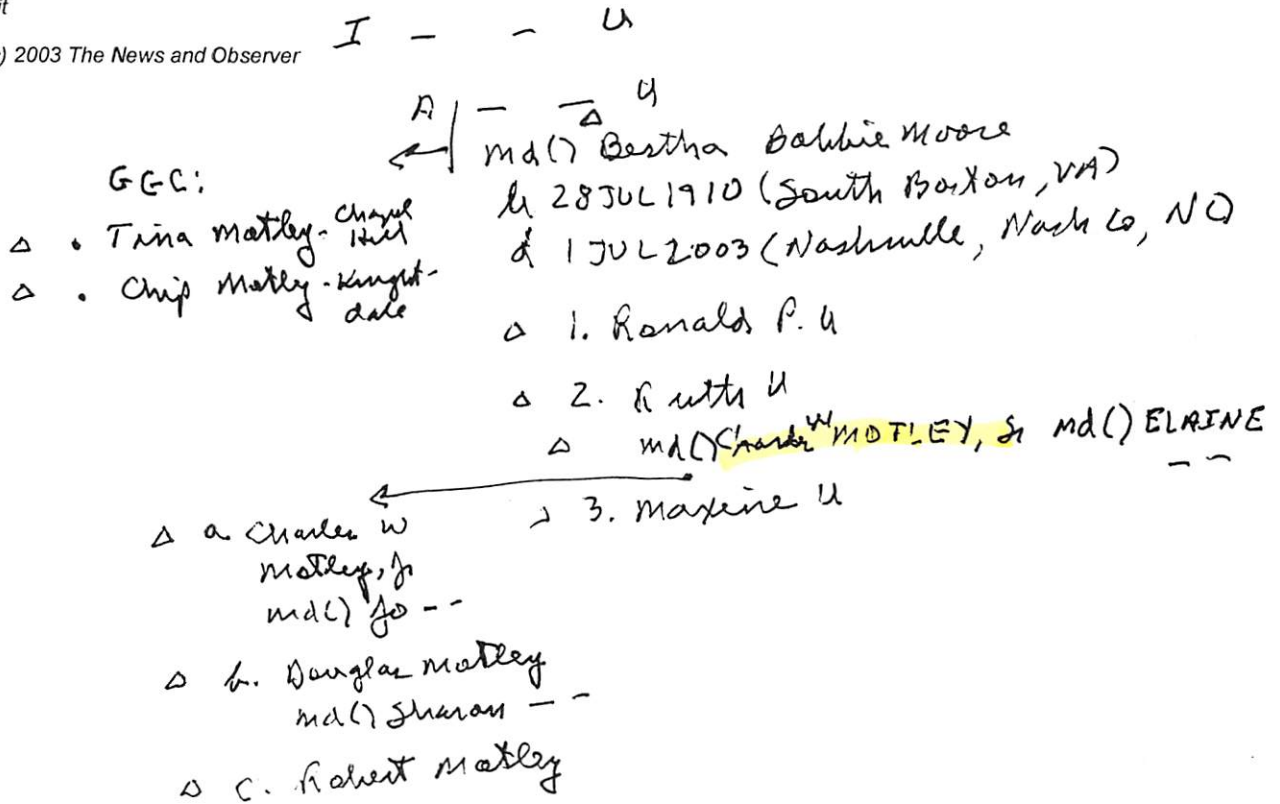 it
) 2003 The News and Observer
I - - U
A - - U
md() Bertha Dabbie Moore
b 28 JUL 1910 (South Boston, VA)
d 1 JUL 2003 (Nashville, Nash Co, NC)
GGC:
• Tina Motley - Chapel Hill
• Chip Motley - Knight-
dale
1. Ronald P. U
2. Ruth U
md() Charles W MOTLEY, Sr md() ELAINE - -
3. Maxine U
a. Charles W
Motley, Jr
md() Jo - -
b. Douglas Motley
md() Sharon - -
c. Robert Motley